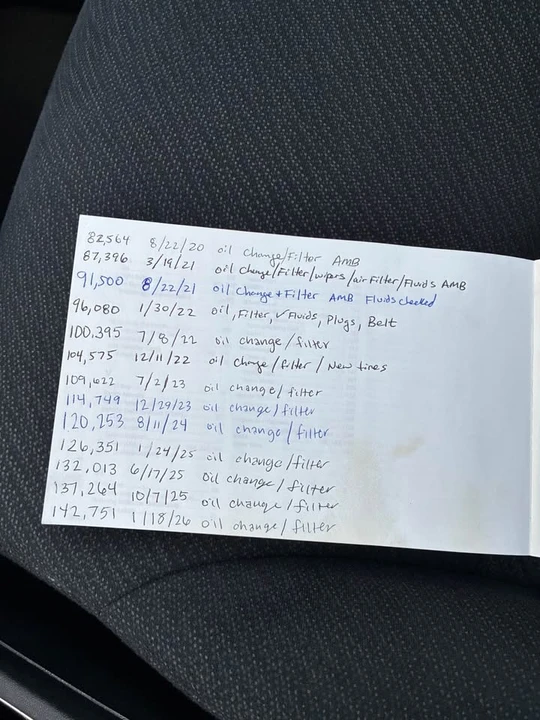 82,564 8/22/20 oil change/Filter AMB
87,396 3/19/21 oil Change/Filter/wipers/air Filter/Fluids AMB
91,500 8/22/21 oil Change + Filter AMB Fluids checked
96,080 1/30/22 oil, Filter, ✓Fluids, Plugs, Belt
100,395 7/8/22 oil change/filter
104,575 12/11/22 oil change/filter/New tires
109,622 7/2/23 oil change/filter
114,749 12/29/23 oil change/filter
120,253 8/11/24 oil change/filter
126,351 1/24/25 oil change/filter
132,013 6/17/25 oil change/filter
137,264 10/7/25 oil change/filter
142,751 1/18/26 oil change/filter